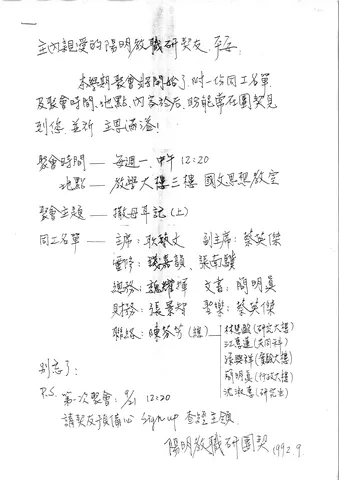 主內親愛的陽明教職研契友，平安：
本學期聚會將開始了，附一份同工名單
及聚會時間、地點、內容於后，盼能常在團契見
到您，並祈 主恩滿溢！
聚會時間 — 每週一，中午 12:20
地點 — 教學大樓三樓 國父思想教室
聚會主題 — 撒母耳記（上）
同工名單 — 主席：耿 文 副主席：蔡英傑
靈修： 嘉韻、張南驥
總務：魏耀揮 文書：簡明真
財務：張景智 聖樂：蔡英傑
聯絡：陳芬芳（總）
林 （研究大樓）
江 蓮（共同科）
張 祥（實驗大樓）
簡明真（行政大樓）
沈淑惠（研究生）
別忘了：
P.S. 第一次聚會：9/21 12:20
請契友預備心 sign up 查經主領
陽明教職研團契 1992.9.